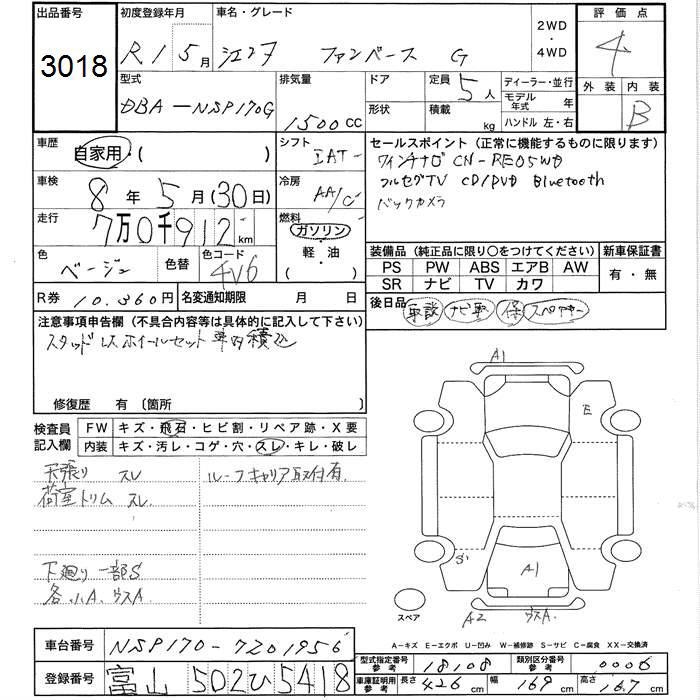 出品番号 初度登録年月 車名・グレード 2WD・4WD 評価点
3018 R1 5月 シエンタ ファンベース G 4
型式 排気量 ドア 定員 ディーラー・並行 外装 内装
DBA-NSP170G 1500CC 5人 モデル年式 年 B
形状 積載 kg ハンドル 左・右
車歴 自家用・( ) シフト IAT
セールスポイント(正常に機能するものに限ります)
ワインナビ CN-RE05WD
フルセグTV CD/DVD Bluetooth
バックカメラ
車検 8年 5月(30日) 冷房 AA/C
走行 7万0千912km 燃料 ガソリン・軽・油・( )
色 ベージュ 色替 色コード 4V6
装備品(純正品に限り○をつけてください) 新車保証書
PS PW ABS エアB AW 有・無
SR ナビ TV カワ
R券 10,360円 名変通知期限 月 日
後日品 取説 ナビ取 保 スペアキー
注意事項申告欄(不具合内容等は具体的に記入して下さい)
スタッドレスホイールセット車内積込
修復歴 有(箇所
検査員記入欄 FW キズ・飛石・ヒビ割・リペア跡・X要
内装 キズ・汚レ・コゲ・穴・スレ・キレ・破レ
天張り スレ ルーフキャリア取付有
荷室トリム スレ
下廻り一部S
各小A、ウスA
A1
E
S'
A1
スペア A2 ウスA
A-キズ E-エクボ U-凹み W-補修跡 S-サビ C-腐食 XX-交換済
車台番号 NSP170-7201956
型式指定番号 参考 18108 類別区分番号 参考 0006
登録番号 富山 502 ひ 5418
車庫証明用 参考 長さ 426cm 幅 169cm 高さ 167cm